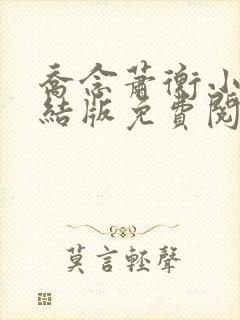 喬念蕭衡小
結版免費閱
莫言輕聲